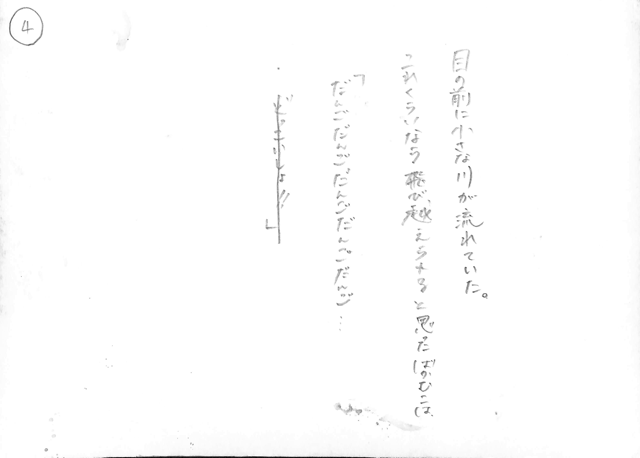 ④
目の前に小さな川が流れていた。
これくらいなら飛び越えられると思ったばかむこは、
「だんごだんごだんごだんごだんご…
どっこいしょ!!」